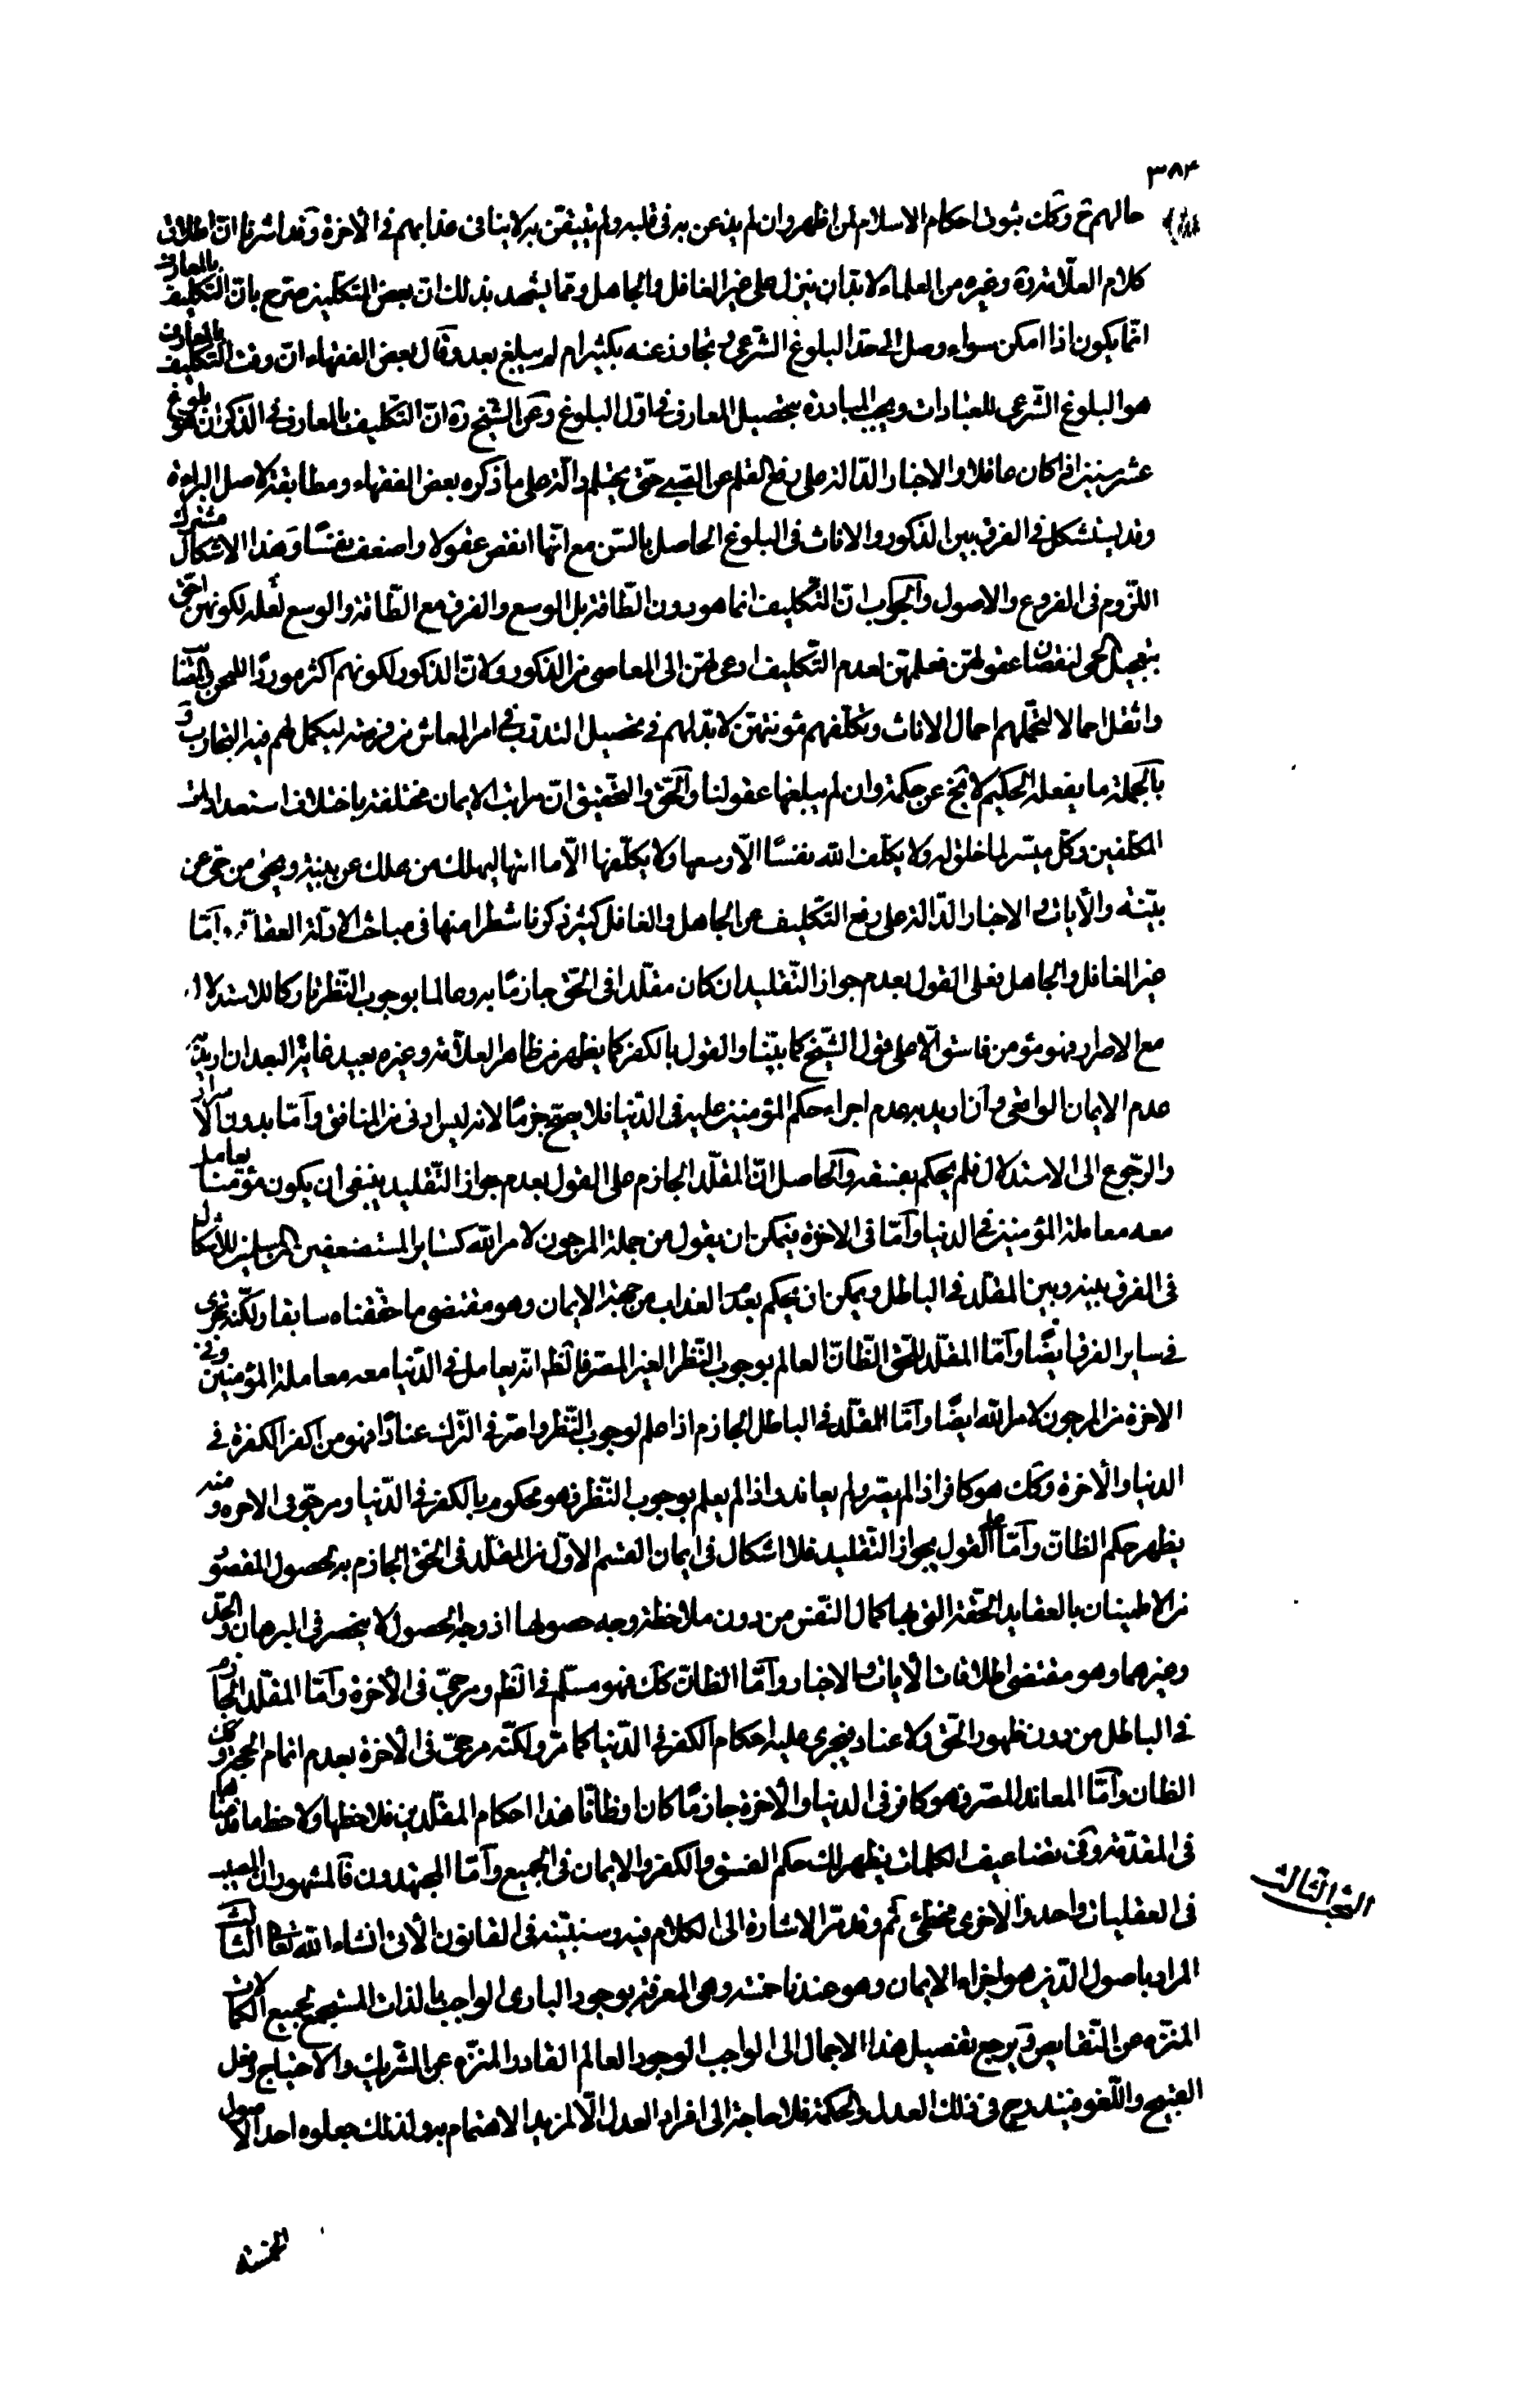 ٣٨۴
حالهم ح وكك ثبوت احكام الاسلام لمن اظهر وان لم يذعن به فى قلبه ولم يتيقن به لا ينافى عذابهم فى الآخرة وقد اشرنا انّ اطلاق
كلام العلّامة ره وغيره من العلماء لا بد ان ينزل على غير الغافل والجاهل وممّا يشهد بذلك ان بعض المتكلمين صرّح بانّ التّكليف بالمعارف
انّما يكون اذا امكن سواء وصل الى حدّ البلوغ الشّرعى او تجاوز عنه بكثير ام لم يبلغ بعد وقال بعض الفقهاء انّ وقت التّكليف بالمعارف
هو البلوغ الشّرعى للعبادات ويجب المبادرة بتحصيل المعارف فى اوّل البلوغ وعن الشّيخ ره انّ التّكليف بالمعارف فى الذكران هو بلوغ
عشر سنين اذا كان عاقلا والاخبار الدّالة على رفع القلم عن الصّبى حتّى يحتلم دالّة على ما ذكره بعض الفقهاء ومطابقة لاصل البراءة
وقد يستشكل فى الفرق بين الذكور والاناث فى البلوغ الحاصل بالسّن مع انّها انقص عقولا واضعف نفسًا وهذا الاشكال مشترك
اللّزوم فى الفروع والاصول والجواب انّ التّكليف انما هو بدون الطّاقة بل الوسع والفرق مع الطّاقة والوسع لعله لكونهن احقّ
بتعجيل الحجر لنقصان عقولهنّ فعلمهنّ لعدم التّكليف ادعى لهنّ الى المعاصى من الذكور ولانّ الذكور لكونهم اكثر موردًا للمحن والمصائب
واثقل احمالا لتحمّلهم احمال الاناث وتكلّفهم مؤنتهنّ لا بدّ لهم فى تحصيل التدرّب فى امر المعاش من فرصة ليكمل لهم فيه التجارب و
بالجملة ما يفعله الحكيم لا يخ عن حكمة وان لم يبلغها عقولنا والحقّ والتحقيق انّ مراتب الايمان مختلفة باختلاف استعدادات
المكلفين وكلّ ميسّر لما خلق له ولا يكلّف الله نفسًا الّا وسعها ولا يكلّفها الّا ما اتيها ليهلك من هلك عن بيّنة ويحيى من حىّ عن
بيّنة والآيات والاخبار الدّالة على رفع التّكليف عن الجاهل والغافل كثير ذكرنا شطرا منها فى مباحث الادلّة العقليّة وامّا
غير الغافل والجاهل فعلى القول بعدم جواز التّقليد ان كان مقلّدا فى الحقّ جازمًا به وعالما بوجوب النّظر تاركا للاستدلال
مع الاصرار فهو مؤمن فاسق الّا على قول الشّيخ كما بيّنا والقول بالكفر كما يظهر من ظاهر العلّامة وغيره بعيد غاية البعد ان اريد به
عدم الايمان الواقعى وان اريد به عدم اجراء حكم المؤمنين عليه فى الدّنيا فلا يصحّ جزمًا لانه ليس ادنى من المنافق وامّا بدون الاصرار
والرّجوع الى الاستدلال فلم يحكم بفسقه والحاصل انّ المقلّد الجازم على القول بعدم جواز التّقليد ينبغى ان يكون مؤمنا يعامل
معه معاملة المؤمنين فى الدنيا وامّا فى الاخرة فيمكن ان يقول من جملة المرجون لامر الله كساير المستضعفين من المسلمين للاشكال
فى الفرق بينه وبين المقلّد فى الباطل ويمكن ان يحكم بعدم العذاب من جهة الايمان وهو مقتضى ما حقّقناه سابقا ولكنّه يجرى
فى ساير الفرق ايضًا وامّا المقلّد للحقّ الظّانّ العالم بوجوب النّظر الغير المصرّ فالظّ انّه يعامل فى الدّنيا معه معاملة المؤمنين وفى
الاخرة من المرجون لامر الله ايضًا وامّا المقلّد فى الباطل الجازم اذا علم لوجوب النّظر واصرّ فى التّرك عنادًا فهو من اكفر الكفرة فى
الدنيا والآخرة وكك هو كافر اذا لم يصرّ ولم يعاند واذا لم يعلم بوجوب النّظر فهو محكوم بالكفر فى الدّنيا ومرجّو فى الاخره ومنه
يظهر حكم الظان وامّا على القول بجواز التّقليد فلا اشكال فى ايمان القسم الاوّل من المقلّد فى الحقّ الجازم به لحصول المقصود
من الاطمينان بالعقايد الحقّة التى بها كمال النّفس من دون ملاحظة وجه حصولها اذ وجه الحصول لا ينحصر فى البرهان والجدل
وغيرهما وهو مقتضى اطلاقات الآيات والاخبار وامّا الظانّ كك فهو مسلّم فى الظ ومرجىّ فى الآخرة وامّا المقلّد الجازم
فى الباطل من دون ظهور الحقّ ولا عناد فيجرى عليه احكام الكفر فى الدّنيا كما مرّ ولكنّه مرجىّ فى الآخرة بعدم اتمام الحجّة وكك
الظان وامّا المعاند المصرّ فهو كافر فى الدنيا والآخرة جازمًا كان او ظانّا هذا احكام المقلّدين فلاحظها ولاحظ ما قدّمنا
فى المقدّمة وفى تضاعيف الكلمات يظهر لك حكم الفسق والكفر والايمان فى الجميع وامّا المجتهدون فالمشهور ان المصيب
فى العقليات واحد والآخرى مخطئ آثم وقد مرّ الاشارة الى الكلام فيه وسنبيّنه فى القانون الآتى انشاء الله تعالى الثالث
البحث الثالث
المراد باصول الدّين هو اجزاء الايمان وهو عندنا خمسة وهى المعرفة بوجود البارى الواجب بالذات المستجمع لجميع الكمالات
المنزّه عن النّقايص ويرجع تفصيل هذا الاجمال الى الواجب الوجود العالم القادر المنزّه عن الشّريك والاحتياج وفعل
القبيح واللّغو فيندرج فى ذلك العدل والحكمة فلا حاجة الى افراد العدل الّا لمزيد الاهتمام به ولذلك جعلوه احد الاصول
الخمسة